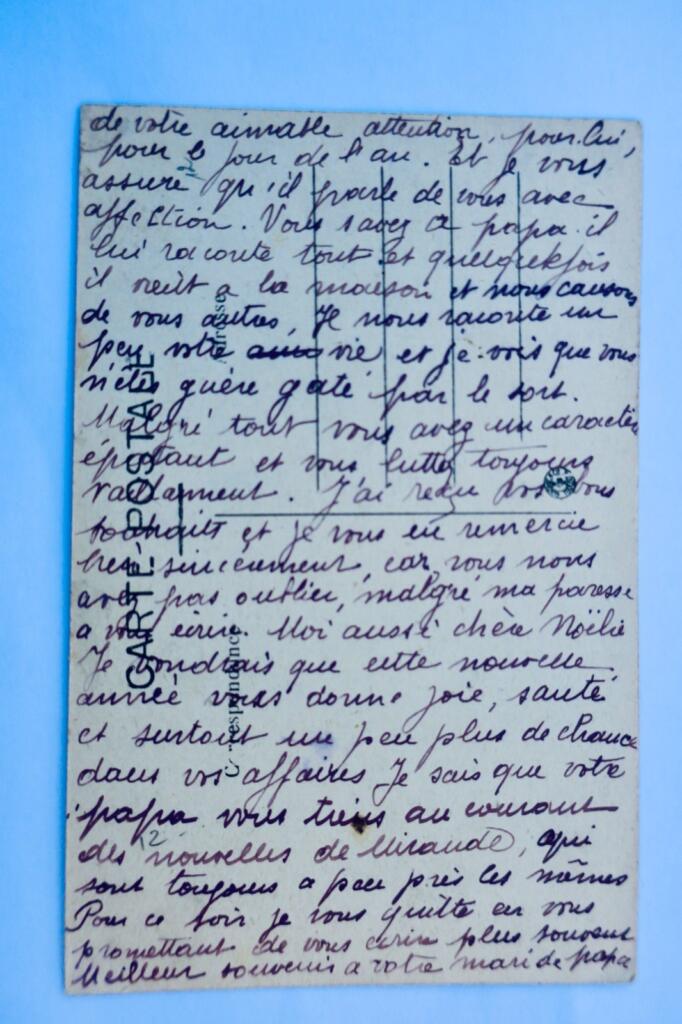 de votre aimable attention, pour lui,
pour le jour de l'an. Et je vous
assure qu'il parle de vous avec
affection. Vous savez a papa il
lui raconte tout et quelquefois
il vient a la maison et nous causons
de vous autres, Je nous raconte un
peu votre vie et je vois que vous
n'êtes guère gaté par le sort.
Malgré tout vous avez un caractère
épatant et vous luttez toujours
vaillamment. J'ai reçu vos vous
souhaits et je vous en remercie
bien sincèrement, car vous nous
avez pas oublier, malgré ma paresse
a vous écrire. Moi aussi chère Noëlie
Je voudrais que cette nouvelle
année vous donne joie, santé
et surtout un peu plus de chance
dans vos affaires Je sais que votre
papa vous tiens au courant
des nouvelles de Mirande, qui
sont toujours a peu près les mêmes
Pour ce soir je vous quitte en vous
promettant de vous écrire plus souvent
Meilleur souvenir a votre mari de papa
CARTE POSTALE
Correspondance
Adresse
12